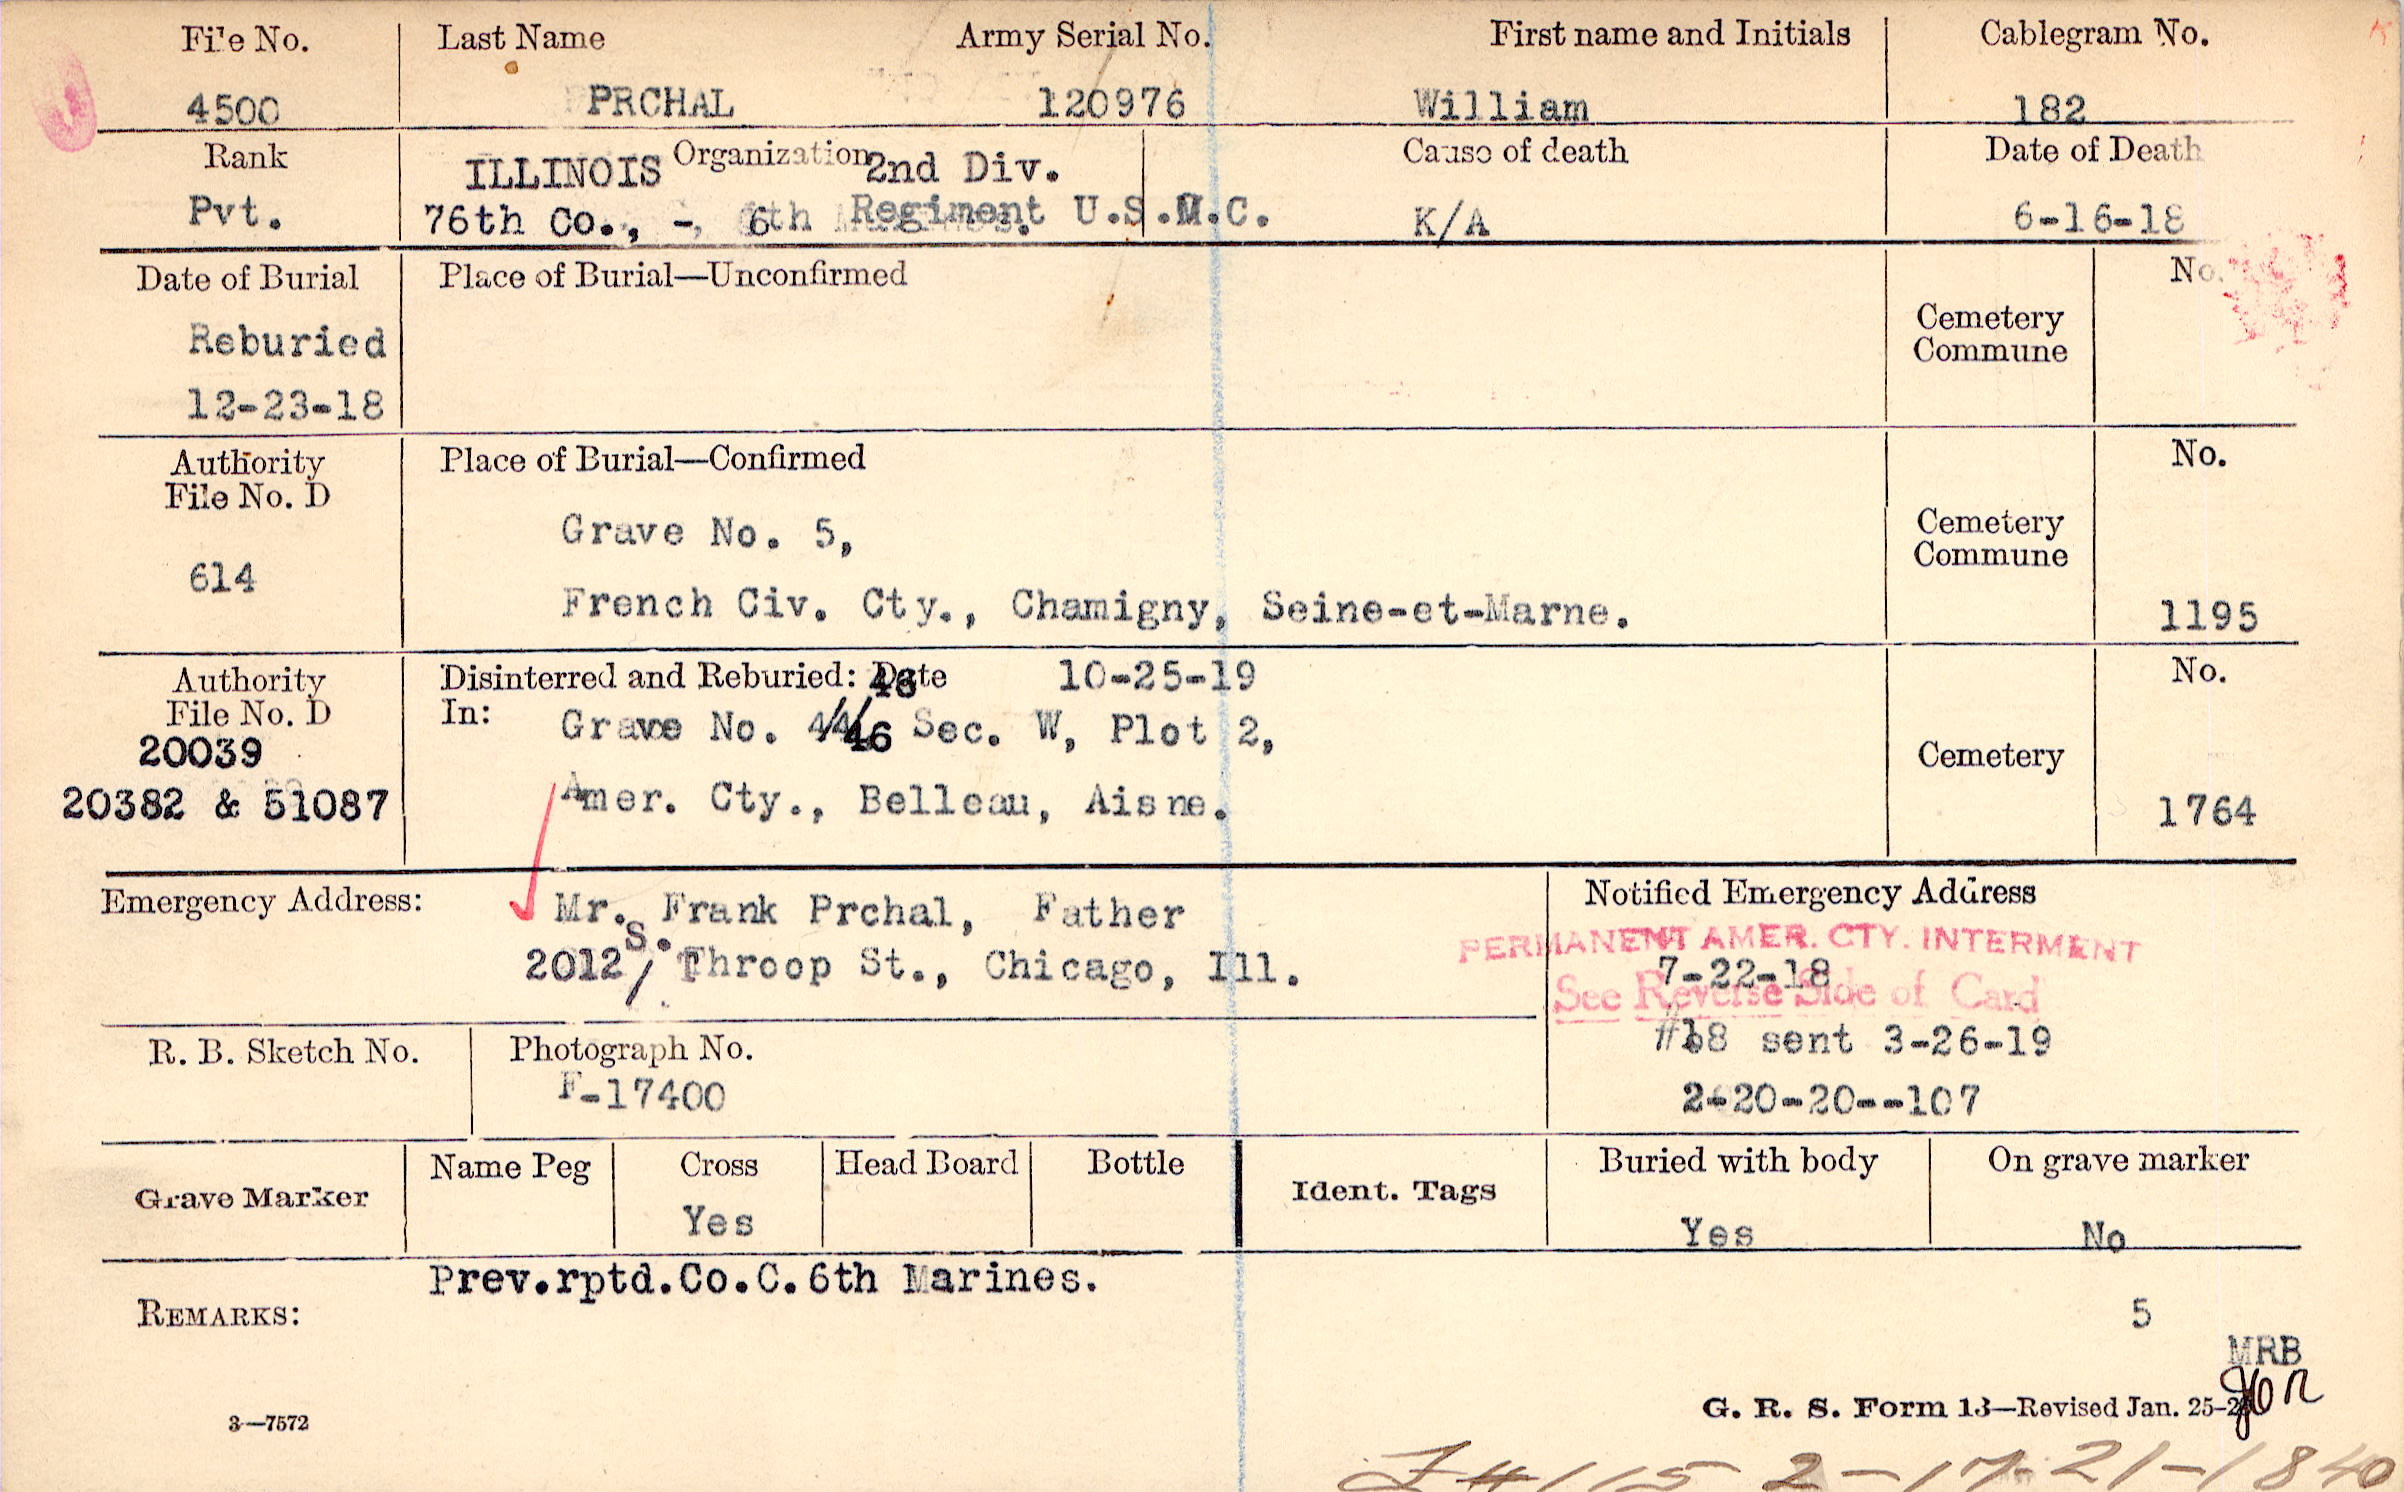 File No. Last Name Army Serial No. First name and Initials Cablegram No.
4500 PRCHAL 120976 William 182
Rank Organization Cause of death Date of Death
ILLINOIS 2nd Div.
Pvt. 76th Co., -, 6th Regiment U.S.M.C. K/A 6-16-18
Date of Burial Place of Burial—Unconfirmed No.
Reburied Cemetery
Commune
12-23-18
Authority Place of Burial—Confirmed No.
File No. D
Grave No. 5, Cemetery
Commune
614
French Civ. Cty., Chamigny, Seine-et-Marne. 1195
Authority Disinterred and Reburied: Date 10-25-19 No.
File No. D In: 46
20039 Grave No. 44/46 Sec. W, Plot 2, Cemetery
20382 & 51087 Amer. Cty., Belleau, Aisne. 1764
Emergency Address: Mr. Frank Prchal, Father Notified Emergency Address
PERMANENT AMER. CTY. INTERMENT
2012 S. Throop St., Chicago, Ill. 7-22-18
See Reverse Side of Card
R. B. Sketch No. Photograph No. #18 sent 3-26-19
F-17400 2-20-20--107
Grave Marker Name Peg Cross Head Board Bottle Ident. Tags Buried with body On grave marker
Yes Yes No
Prev.rptd.Co.C.6th Marines.
REMARKS: 5
MRB
3—7572 G. R. S. Form 13—Revised Jan. 25-
115 2-17-21-1840